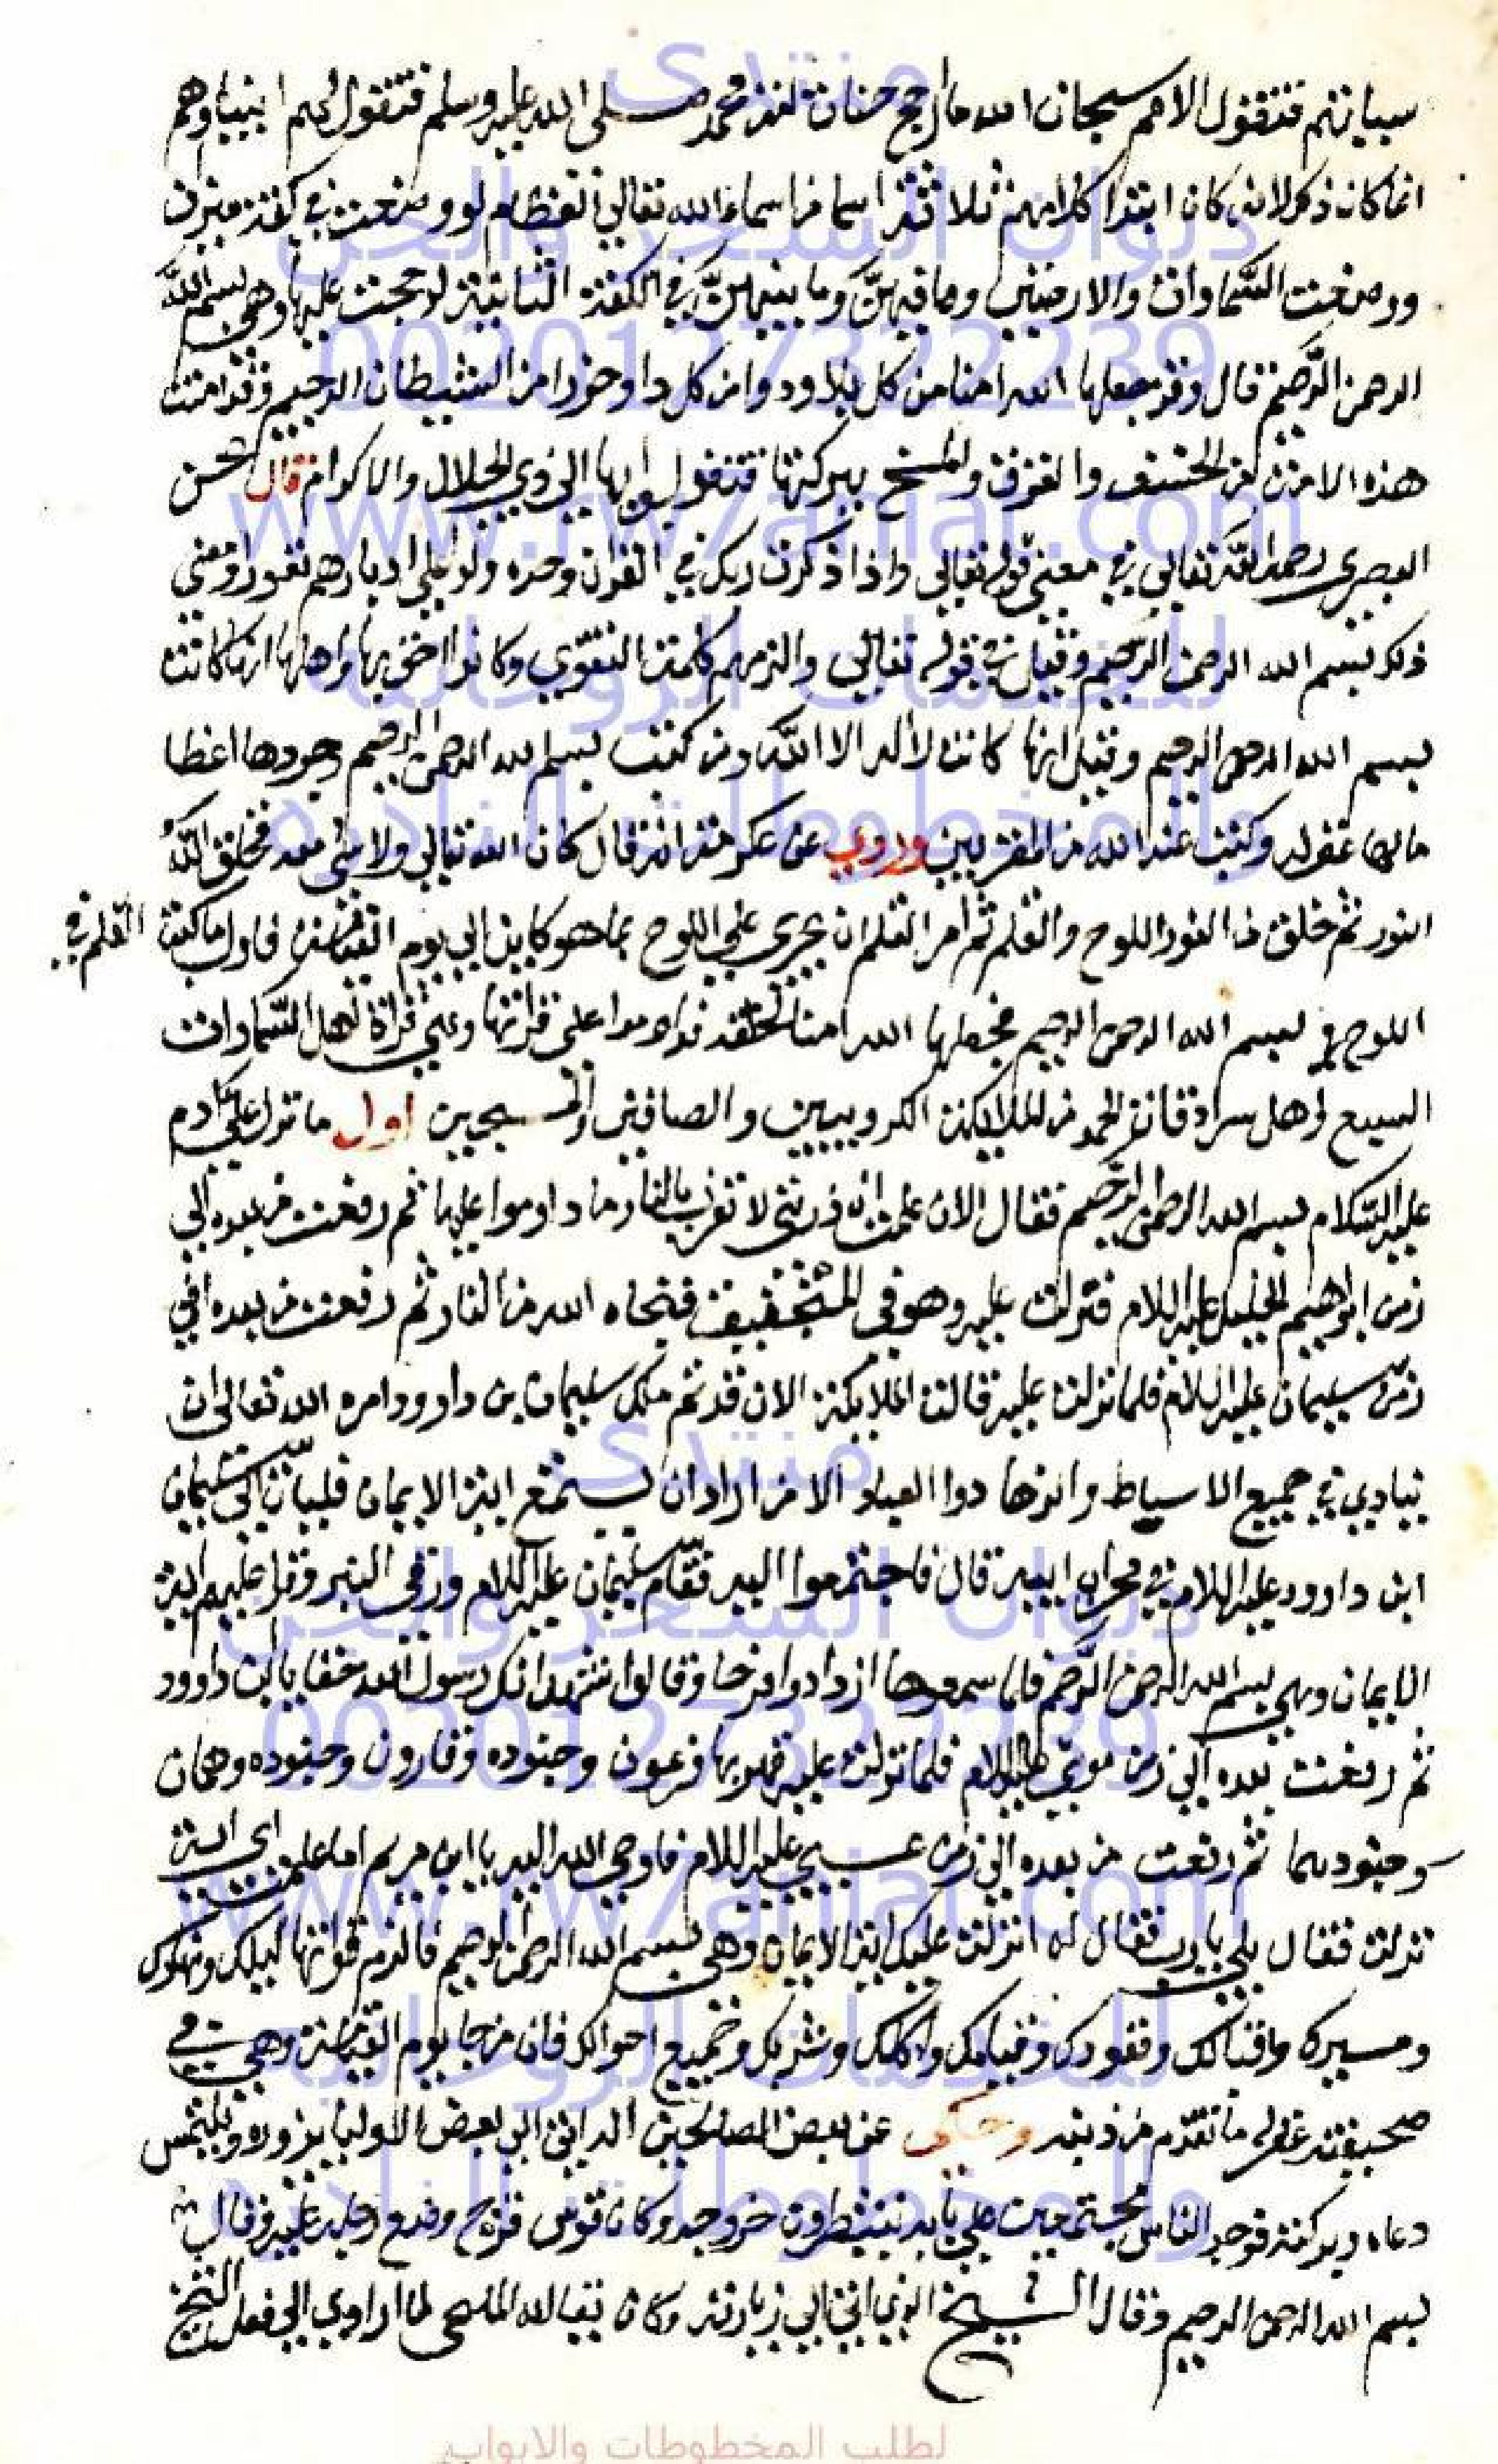 سياتهم فتقول الامم سبحان الله ما ارجح حسنات امة محمد صلى الله عليه وسلم فتقول لهم انبياوهم
انما كان ذلك لانه كان ابتدا كلامهم ثلاثة اسما من اسماء الله تعالى العظام لو وضعت في كفة ميزان
ووضعت السماوات والارضين وما فيهن وما بينهن في الكفة الثانية لرجحت عليها وهي بسم الله
الرحمن الرحيم قال وقد جعلها الله امنا من كل بلا ودوا من كل دا وحرزا من الشيطان الرجيم وقد امنت
هذه الامة من الخسف والغرق والمسخ ببركتها فتقربوا بها الى ذي الجلال والاكرام قال الحسن
البصري رحمه الله تعالى في معنى قوله تعالى واذا ذكرت ربك في القران وحده ولوا على ادبارهم نفورا ومعنى
ذلك بسم الله الرحمن الرحيم وقيل في قوله تعالى والزمهم كلمة التقوي وكانوا احق بها واهلها انها كانت
بسم الله الرحمن الرحيم وقيل انها كانت لا اله الا الله ومن كتب بسم الله الرحمن الرحيم وجودها اعظا
ما لها غفر له وكتب عند الله من المقربين وروي عن عكرمة انه قال كان الله تعالى ولا شي معه فخلق الله
النور ثم خلق من النور اللوح والقلم ثم امر القلم ان يجري على اللوح بما هو كاين الى يوم القيامة فاول ما كتب القلم في
اللوح بسم الله الرحمن الرحيم فجعلها الله امنا لخلقه ما داوموا على قراتها وهي قراة اهل السماوات
السبع واهل سرادقات المجد من الملايكة الكروبيين والصافين والمسبحين اول ما نزل على ادم
عليه السلام بسم الله الرحمن الرحيم فقال الان علمت ان ذريتي لا تعذب بالنار ما داوموا عليها ثم رفعت من بعده الى
زمن ابراهيم الخليل عليه السلام فنزلت عليه وهو في المنجنيق فنجاه الله من النار ثم رفعت من بعده الى
زمن سليمان عليه السلام فلما نزلت عليه قالت الملايكة الان قد تم ملك سليمان بن داوود امره الله تعالى ان
ينادي في جميع الاسباط والزها دوا العباد الا من اراد ان يستمع اية الايمان فليات الى سليمان
ابن داوود عليه السلام في محراب ابيه قال فاجتمعوا اليه فقام سليمان عليه السلام ورقى المنبر وقرا عليهم اية
الايمان وهي بسم الله الرحمن الرحيم فلما سمعوها ازدادوا فرحا وقالوا نشهد انك رسول الله حقا يا ابن داوود
ثم رفعت بعده الى زمن موسى عليه السلام فلما نزلت عليه قهر بها فرعون وجنوده وقارون وجنوده وهامان
وجنودهما ثم رفعت من بعده الى زمن عيسى عليه السلام فاوحي الله اليه يا ابن مريم اما علمت اي اية
نزلت فقال بلى يا رب فقال له انزلت عليك اية الايمان وهي بسم الله الرحمن الرحيم فالزم قراتها ليلك ونهارك
ومسيرك واقبالك وقعودك وقيامك واكلك وشربك وجميع احوالك فان من جا يوم القيامة وهي في
صحيفته غفر له ما تقدم من ذنبه وحكى عن بعض الصالحين انه اتى الى بعض الاوليا يزوره ويلتمس
دعاه وبركته فوجد الناس مجتمعين على بابه ينتظرون خروجه وكان قوس قزح وضع رجله عليه وقال
بسم الله الرحمن الرحيم وقال الشيخ الذي اتى الى زيارته وكان يقال له الملحي لما اراوي الى فعل الشيخ
منتدى
ديوان السحر والجن
00201273222239
www.rw7aniat.com
للخدمات الروحانية
والمخطوطات النادره
منتدى
ديوان السحر والجن
00201273222239
www.rw7aniat.com
للخدمات الروحانية
والمخطوطات النادره
لطلب المخطوطات والابواب